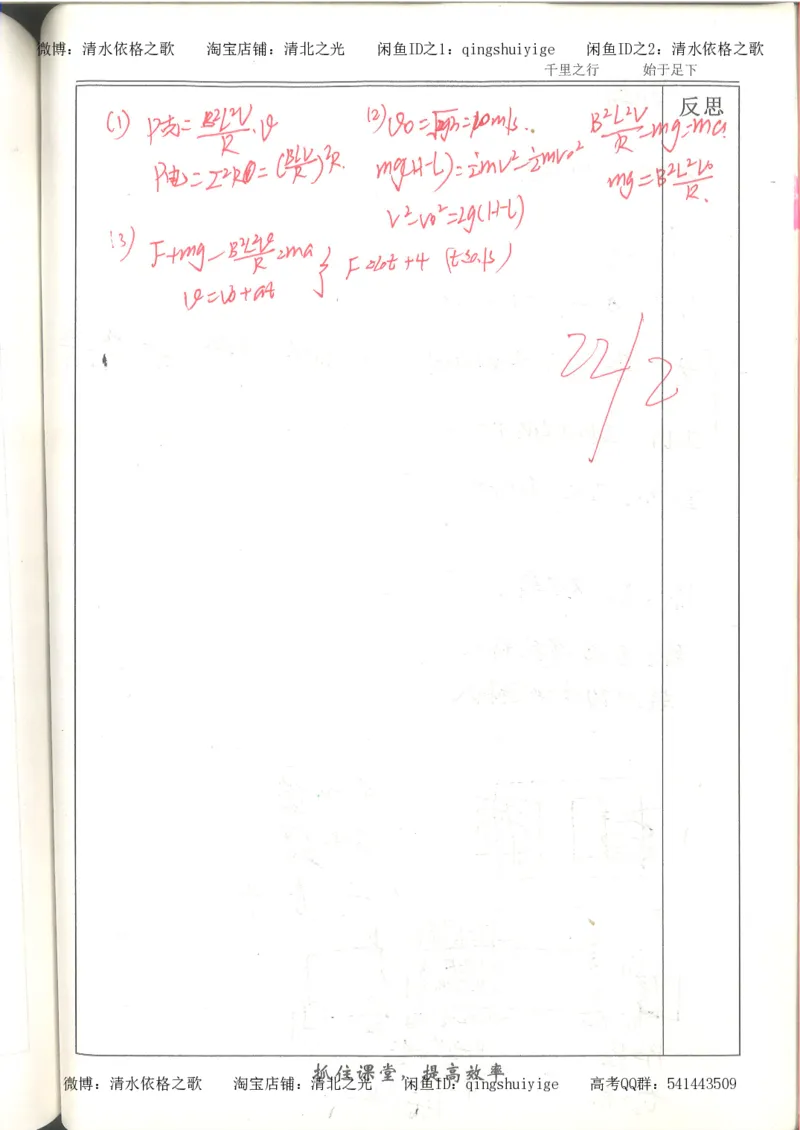 微博：清水依格之歌 淘宝店铺：清北之光 闲鱼ID之1：qingshuiyige 闲鱼ID之2：清水依格之歌
千里之行 始于足下
反思
(1) P安=B²L²V/R·v
P电=I²R=(BLV/R)²R.
(2) v₀=√2gh=10m/s.
mg(H-L)=½mv²-½mv₀²
v²-v₀²=2g(H-L)
B²L²V/R-mg=ma
mg=B²L²v₀/R.
(3) F+mg-B²L²v/R=ma
v=v₀+at
} F=20t+4
22/2
抓住课堂，提高效率
微博：清水依格之歌 淘宝店铺：清北之光 闲鱼ID：qingshuiyige 高考QQ群：541443509